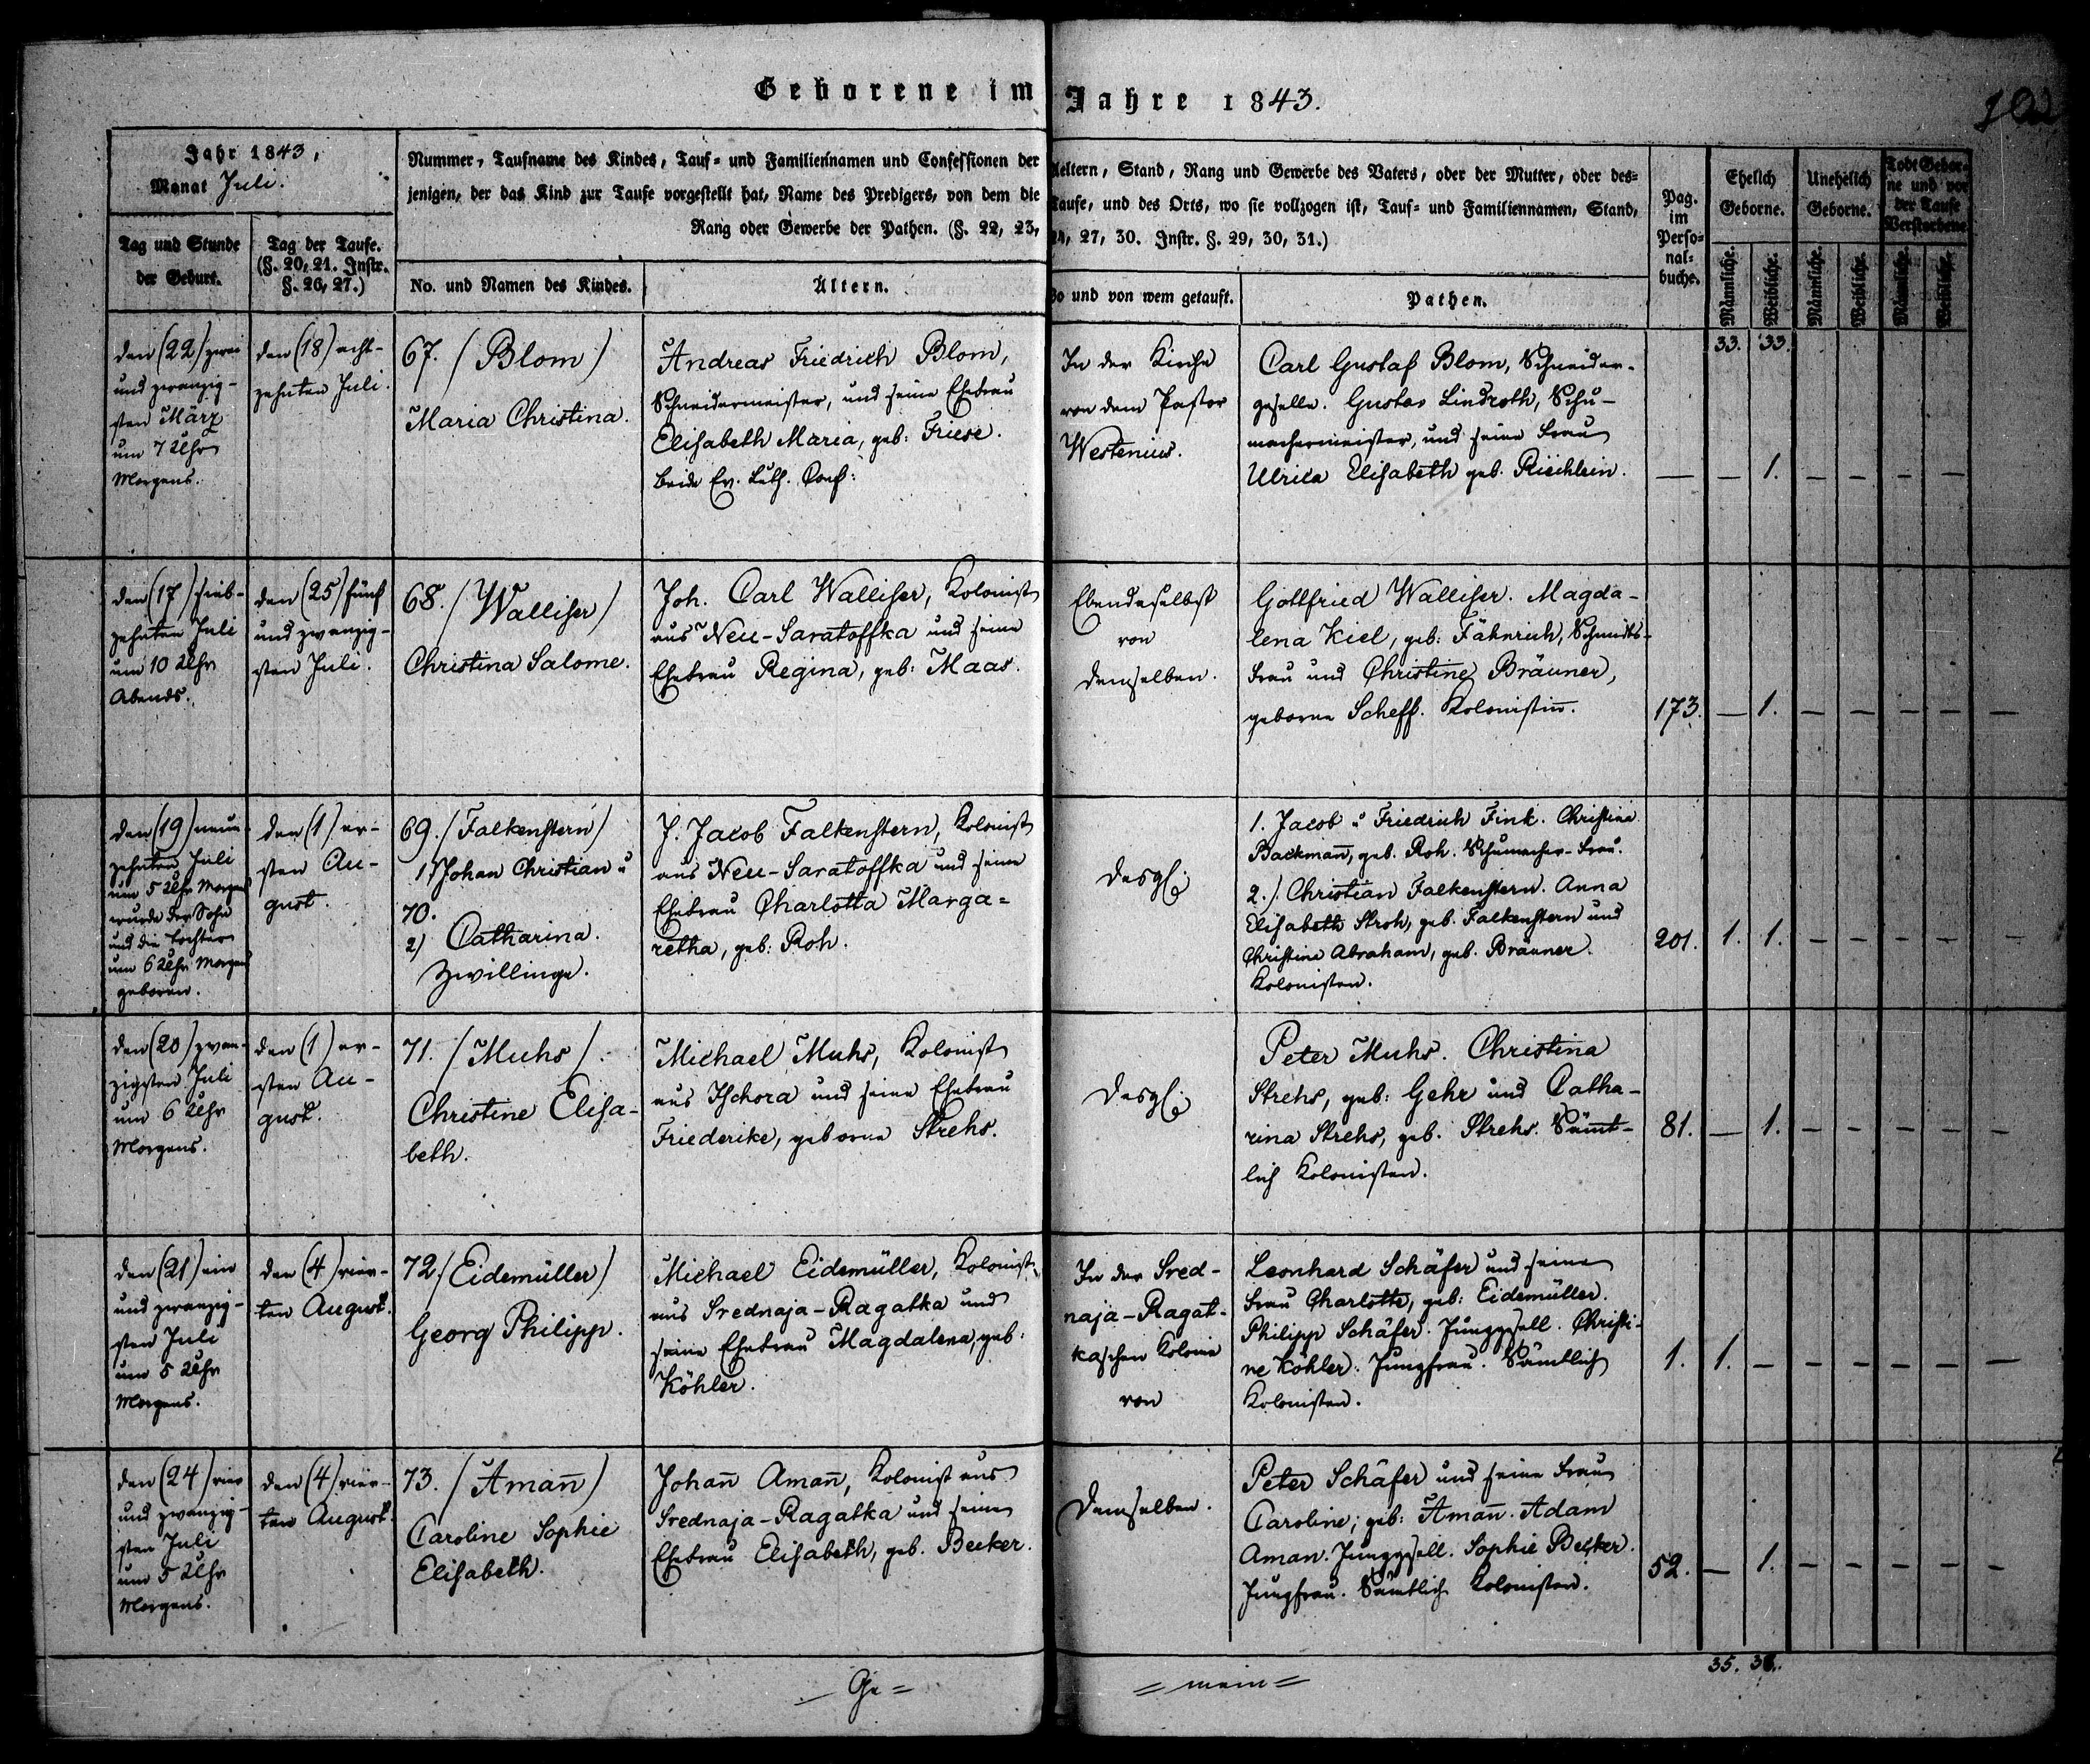 Geborene im Jahre 1843.
Jahr 1843,
Monat Juli.
Tag und Stunde
der Geburt.
Tag der Taufe.
(§. 20, 21. Instr.
§. 26, 27.)
Nummer, Taufname des Kindes, Tauf- und Familiennamen und Confessionen der Aeltern, Stand, Rang und Gewerbe des Vaters, oder der Mutter, oder des-
jenigen, der das Kind zur Taufe vorgestellt hat, Name des Predigers, von dem die Taufe, und des Orts, wo sie vollzogen ist, Tauf- und Familiennamen, Stand,
Rang oder Gewerbe der Pathen. (§. 22, 23, 24, 27, 30. Instr. §. 29, 30, 31.)
No. und Namen des Kindes.
Ältern.
Wo und von wem getauft.
Pathen.
Pag.
im
Perso-
nal-
buche.
Ehelich
Geborne.
Unehelich
Geborne.
Todt Gebor-
ne und vor
der Taufe
Verstorbene
Männliche.
Weibliche.
Männliche.
Weibliche.
Männliche.
Weibliche.
33. 33.
den (22) zwei
und zwanzig-
sten März
um 7 Uhr
Morgens.
den (18) acht-
zehnten Juli.
67. / Blom /
Maria Christina.
Andreas Friedrich Blom,
Schneidermeister, und seine Ehefrau
Elisabeth Maria, geb: Friese.
beide Ev. Luth. Conf:
In der Kirche
von dem Pastor
Westenius.
Carl Gustaf Blom, Schneider-
geselle. Gustav Lindroth, Schu-
machermeister, und seine Frau
Ulrica Elisabeth geb. Riechlein.
— — 1. — — — —
den (17) sieb-
zehnten Juli
um 10 Uhr
Abends.
den (25) fünf
und zwanzig-
sten Juli.
68. / Walliser /
Christina Salome.
Joh. Carl Walliser, Kolonist
aus Neu-Saratoffka und seine
Ehefrau Regina, geb: Maas.
Ebendaselbst
von
demselben.
Gottfried Walliser. Magda-
lena Kiel, geb: Fähnrich, Schmidts-
Frau und Christine Bräuner,
geborne Scheff. Kolonistin̄.
173. — 1. — — — — —
den (19) neun-
zehnten Juli
um 5 Uhr Morgens
wurde der Sohn
und die Tochter
um 6 Uhr Morgens
geboren.
den (1) er-
sten Au-
gust.
69. / Falkenstern /
1) Johan Christian u
70.
2) Catharina.
Zwillinge.
J. Jacob Falkenstern, Kolonist
aus Neu-Saratoffka und seine
Ehefrau Charlotta Marga=
retha, geb: Roh.
desgl:
1. Jacob u Friedrich Fink. Christina
Backman̄, geb. Roh. Schumacher-Frau.
2./ Christian Falkenstern. Anna
Elisabeth Stroh, geb. Falkenstern und
Christine Abraham, geb. Bräuner.
Kolonisten.
201. 1. 1. — — — — —
den (20) zwan-
zigsten Juli
um 6 Uhr
Morgens.
den (1) er-
sten Au-
gust.
71. / Muhs /.
Christine Elisa-
beth.
Michael Muhs, Kolonist
aus Ischora und seine Ehefrau
Friederike, geborne Strehs.
desgl:
Peter Muhs. Christina
Strehs, geb: Gehr und Catha-
rina Strehs, geb. Strehs. Sämt-
lich Kolonisten.
81. — 1. — — — — —
den (21) ein
und zwanzig-
sten Juli
um 5 Uhr
Morgens.
den (4) vier-
ten August.
72. / Eidemüller /
Georg Philipp.
Michael Eidemüller, Kolonist
aus Srednaja-Ragatka und
seine Ehefrau Magdalena, geb:
Köhler.
In der Sred-
naja-Ragat-
kaschen Kolonie
von
Leonhard Schäfer und seine
Frau Charlotte, geb: Eidemüller.
Philipp Schäfer. Junggesell. Christi-
ne Köhler. Jungfrau. Sämtlich
Kolonisten.
1. 1. — — — — — —
den (24) vier
und zwanzig-
sten Juli
um 5 Uhr
Morgens.
den (4) vier-
ten August.
73. / Aman̄ /
Caroline Sophie
Elisabeth.
Johan̄ Aman̄, Kolonist aus
Srednaja-Ragatka und seine
Ehefrau Elisabeth, geb. Becker.
demselben.
Peter Schäfer und seine Frau
Caroline, geb: Aman̄. Adam
Aman. Junggesell. Sophie Becker.
Jungfrau. Sämtlich Kolonisten.
52. — 1. — — — — —
35. 38.
— Ge =
= mein =